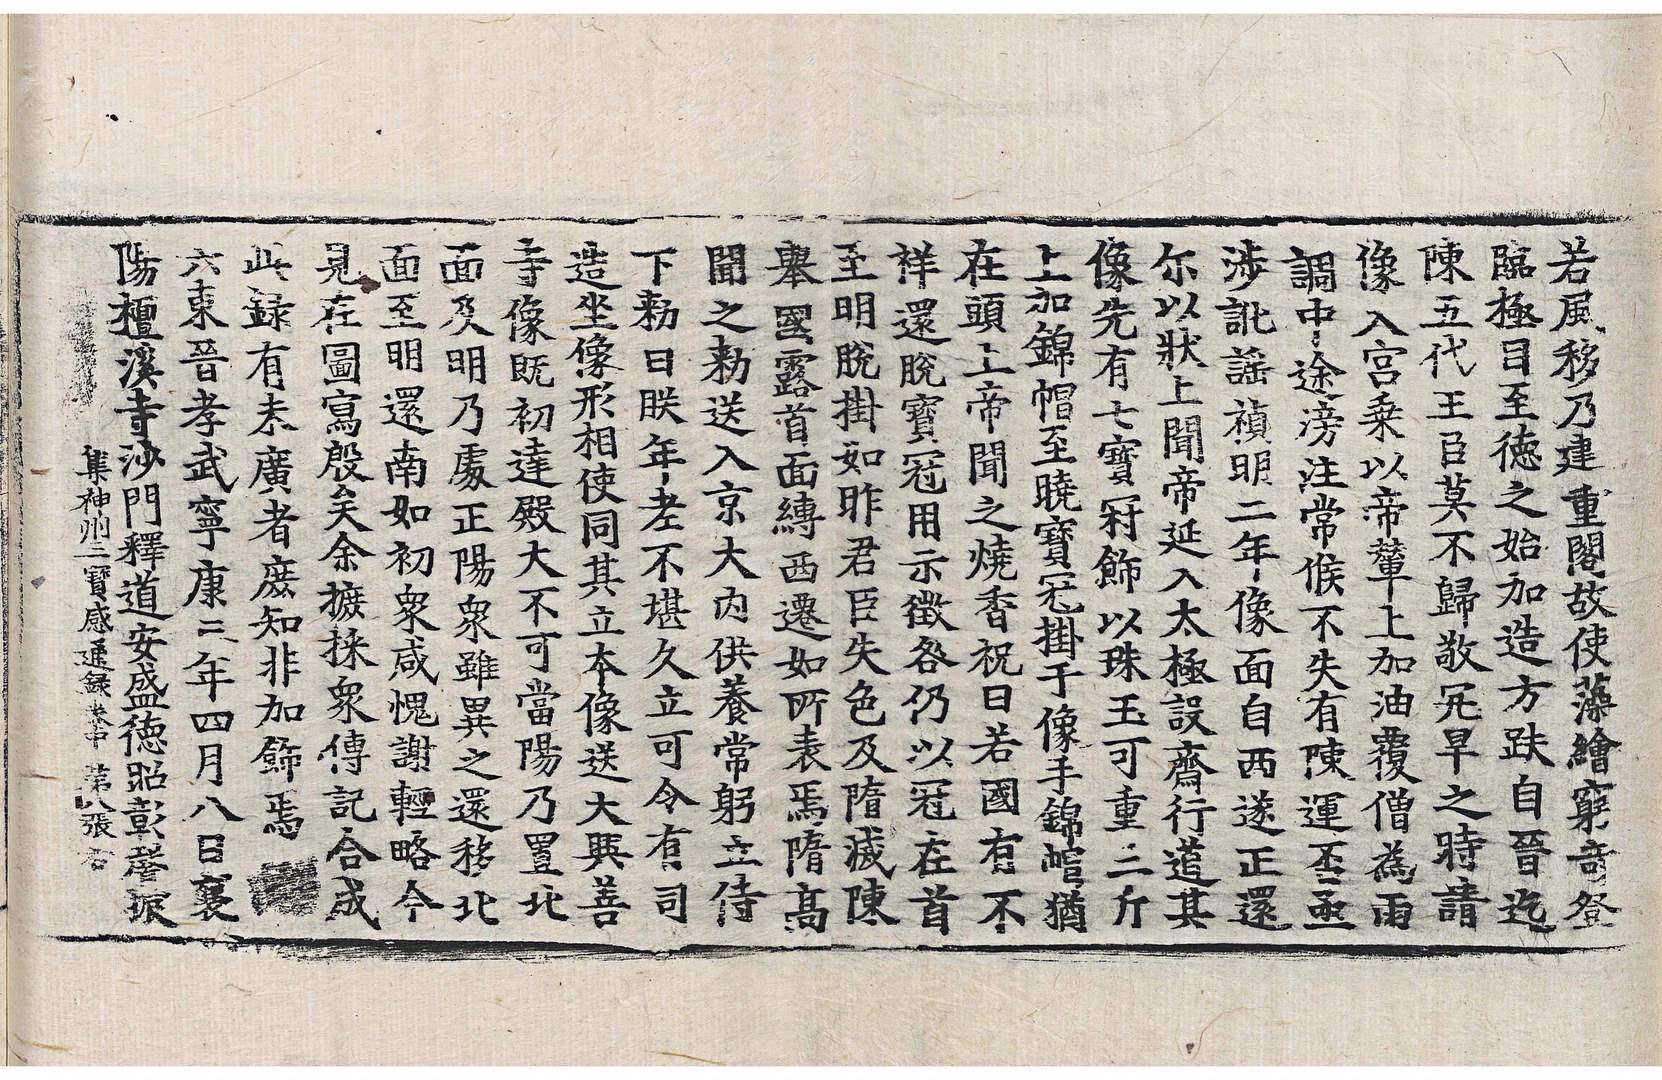 若風移乃建重閣故使藻繪窮奇登
臨極目至德之始加造方趺自晉迄
陳五代王臣莫不歸敬㞃旱之時請
像入宮乗以帝輦上加油覆僧為雨
調中途滂注常候不失有陳運否亟
涉訛謡禎明二年像面自西遂正還
尒以狀上聞帝延入太極設齋行道其
像先有七寶冠飾以珠玉可重三斤
上加錦帽至曉寶冠掛于像手錦帽猶
在頭上帝聞之燒香祝曰若國有不
祥還脫寶冠用示徵咎仍以冠在首
至明脫掛如昨君臣失色及隋滅陳
舉國露首面縛西遷如所表焉隋高
聞之勑送入京大内供養常躬立侍
下勑曰朕年老不堪久立可令有司
造坐像形相使同其立本像送大興善
寺像既初達殿大不可當陽乃置北
面及明乃處正陽衆雖異之還移北
面至明還南如初衆咸愧謝輕略今
見在圖寫殷矣余據採衆傳記合成
此録有未廣者庶知非加飾焉
六東晉孝武寧康三年四月八日襄
陽檀溪寺沙門釋道安盛德昭彰聲振
集神州三寶感通録卷中 第八張 右